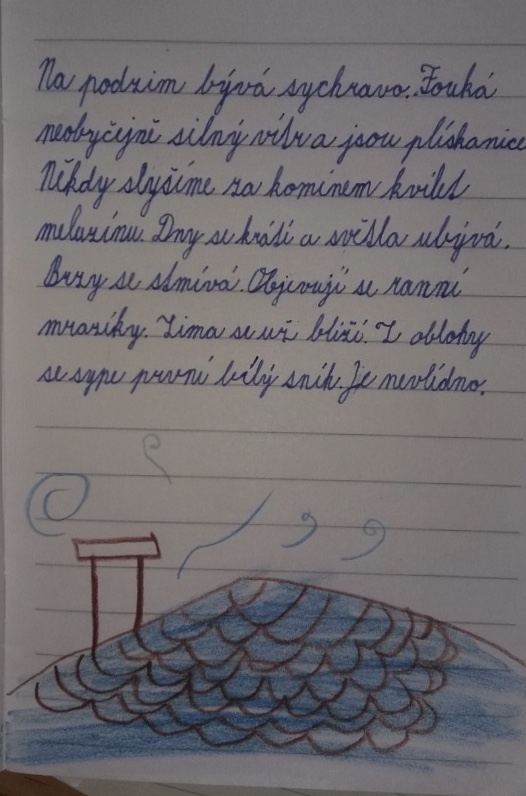 Na podzim bývá sychravo. Fouká
neobyčejně silný vítr a jsou plískanice
Někdy slyšíme za komínem kvílet
meluzínu. Dny se krátí a světla ubývá.
Brzy se stmívá. Objevují se ranní
mrazíky. Zima se už blíží. Z oblohy
se sype první bílý sníh. Je nevlídno.